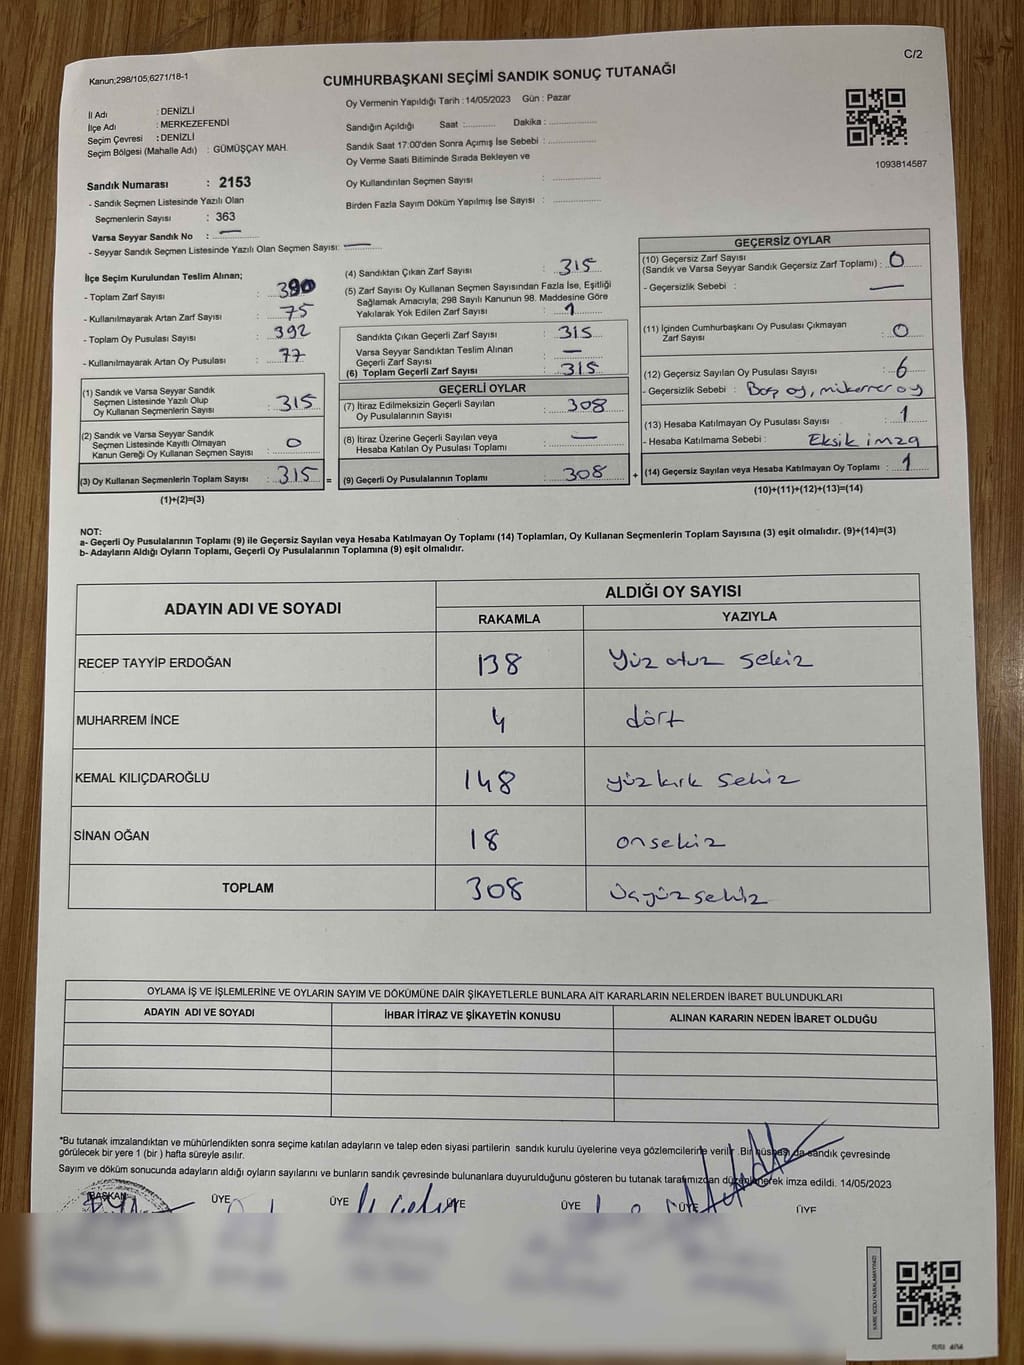 C/2
Kanun;298/105;6271/18-1
CUMHURBAŞKANI SEÇİMİ SANDIK SONUÇ TUTANAĞI
İl Adı : DENİZLİ
İlçe Adı : MERKEZEFENDİ
Seçim Çevresi : DENİZLİ
Seçim Bölgesi (Mahalle Adı) : GÜMÜŞÇAY MAH.
Sandık Numarası : 2153
- Sandık Seçmen Listesinde Yazılı Olan
Seçmenlerin Sayısı : 363
Varsa Seyyar Sandık No : —
- Seyyar Sandık Seçmen Listesinde Yazılı Olan Seçmen Sayısı: —
Oy Vermenin Yapıldığı Tarih : 14/05/2023 Gün : Pazar
Sandığın Açıldığı Saat :............ Dakika : .................
Sandık Saat 17:00'den Sonra Açımış İse Sebebi : .................
Oy Verme Saati Bitiminde Sırada Bekleyen ve
Oy Kullandırılan Seçmen Sayısı : .................
Birden Fazla Sayım Döküm Yapılmış İse Sayısı : .................
1093814587
İlçe Seçim Kurulundan Teslim Alınan;
- Toplam Zarf Sayısı : 390
- Kullanılmayarak Artan Zarf Sayısı : 75
- Toplam Oy Pusulası Sayısı : 392
- Kullanılmayarak Artan Oy Pusulası : 77
(1) Sandık ve Varsa Seyyar Sandık
Seçmen Listesinde Yazılı Olup
Oy Kullanan Seçmenlerin Sayısı : 315
(2) Sandık ve Varsa Seyyar Sandık
Seçmen Listesinde Kayıtlı Olmayan
Kanun Gereği Oy Kullanan Seçmen Sayısı : 0
(3) Oy Kullanan Seçmenlerin Toplam Sayısı : 315 =
(1)+(2)=(3)
(4) Sandıktan Çıkan Zarf Sayısı : 315
(5) Zarf Sayısı Oy Kullanan Seçmen Sayısından Fazla İse, Eşitliği
Sağlamak Amacıyla; 298 Sayılı Kanunun 98. Maddesine Göre
Yakılarak Yok Edilen Zarf Sayısı : 1
Sandıkta Çıkan Geçerli Zarf Sayısı : 315
Varsa Seyyar Sandıktan Teslim Alınan
Geçerli Zarf Sayısı : —
(6) Toplam Geçerli Zarf Sayısı : 315
GEÇERLİ OYLAR
(7) İtiraz Edilmeksizin Geçerli Sayılan
Oy Pusulalarının Sayısı : 308
(8) İtiraz Üzerine Geçerli Sayılan veya
Hesaba Katılan Oy Pusulası Toplamı : —
(9) Geçerli Oy Pusulalarının Toplamı : 308 +
GEÇERSİZ OYLAR
(10) Geçersiz Zarf Sayısı
(Sandık ve Varsa Seyyar Sandık Geçersiz Zarf Toplamı) : 0
- Geçersizlik Sebebi : —
(11) İçinden Cumhurbaşkanı Oy Pusulası Çıkmayan
Zarf Sayısı : 0
(12) Geçersiz Sayılan Oy Pusulası Sayısı : 6
- Geçersizlik Sebebi : Boş oy, mükerrer oy
(13) Hesaba Katılmayan Oy Pusulası Sayısı : 1
- Hesaba Katılmama Sebebi : Eksik imza
(14) Geçersiz Sayılan veya Hesaba Katılmayan Oy Toplamı : 1
(10)+(11)+(12)+(13)=(14)
NOT:
a- Geçerli Oy Pusulalarının Toplamı (9) ile Geçersiz Sayılan veya Hesaba Katılmayan Oy Toplamı (14) Toplamları, Oy Kullanan Seçmenlerin Toplam Sayısına (3) eşit olmalıdır. (9)+(14)=(3)
b- Adayların Aldığı Oyların Toplamı, Geçerli Oy Pusulalarının Toplamına (9) eşit olmalıdır.
ADAYIN ADI VE SOYADI
ALDIĞI OY SAYISI
RAKAMLA YAZIYLA
RECEP TAYYİP ERDOĞAN 138 Yüz otuz sekiz
MUHARREM İNCE 4 dört
KEMAL KILIÇDAROĞLU 148 yüz kırk sekiz
SİNAN OĞAN 18 onsekiz
TOPLAM 308 üçyüzsekiz
OYLAMA İŞ VE İŞLEMLERİNE VE OYLARIN SAYIM VE DÖKÜMÜNE DAİR ŞİKAYETLERLE BUNLARA AİT KARARLARIN NELERDEN İBARET BULUNDUKLARI
ADAYIN ADI VE SOYADI İHBAR İTİRAZ VE ŞİKAYETİN KONUSU ALINAN KARARIN NEDEN İBARET OLDUĞU
*Bu tutanak imzalandıktan ve mühürlendikten sonra seçime katılan adayların ve talep eden siyasi partilerin sandık kurulu üyelerine veya gözlemcilerine verilir. Bir nüshası da sandık çevresinde
görülecek bir yere 1 (bir ) hafta süreyle asılır.
Sayım ve döküm sonucunda adayların aldığı oyların sayılarını ve bunların sandık çevresinde bulunanlara duyurulduğunu gösteren bu tutanak tarafımızdan düzenlenerek imza edildi. 14/05/2023
BAŞKAN ÜYE ÜYE ÜYE ÜYE ÜYE ÜYE